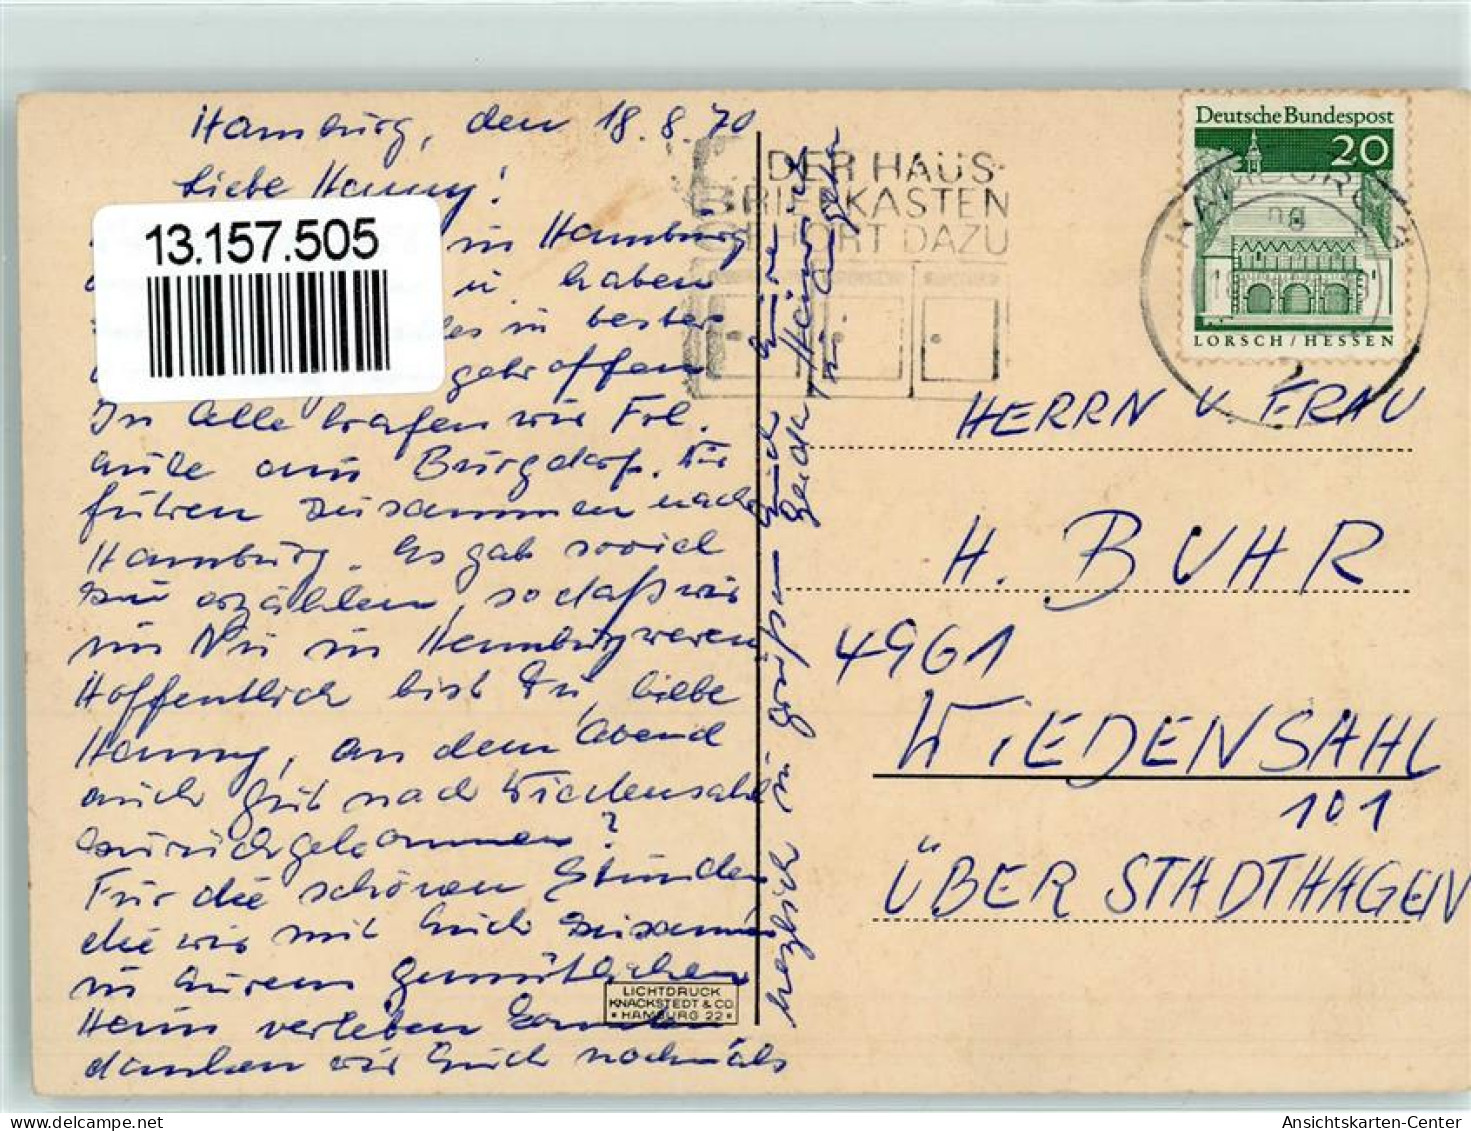 Hamburg, den 18.8.70
Liebe Hanny!
13.157.505
in Hamburg
u. haben
alles in bester
getroffen
In Celle trafen wir Frl.
aus Burgdorf. Wir
fuhren zusammen nach
Hamburg. Es gab soviel
zu erzählen, sodaß wir
im Nu in Hamburg waren
Hoffentlich bist Du, liebe
Hanny, an dem Abend
auch gut nach Wiedensahl
zurückgekommen?
Für die schönen Stunden
die wir mit Euch zusammen
in Eurem gemütlichen
Heim verleben konnten
danken wir Euch nochmals
herzlich u. grüßen Euch
DER HAUS-
BRIEFKASTEN
GEHÖRT DAZU
Deutsche Bundespost
20
LORSCH/HESSEN
HAMBURG
2
HERRN u. FRAU
H. BUHR
4961
WIEDENSAHL
101
ÜBER STADTHAGEN
LICHTDRUCK
KNACKSTEDT & CO.
* HAMBURG 22 *
Ansichtskarten-Center